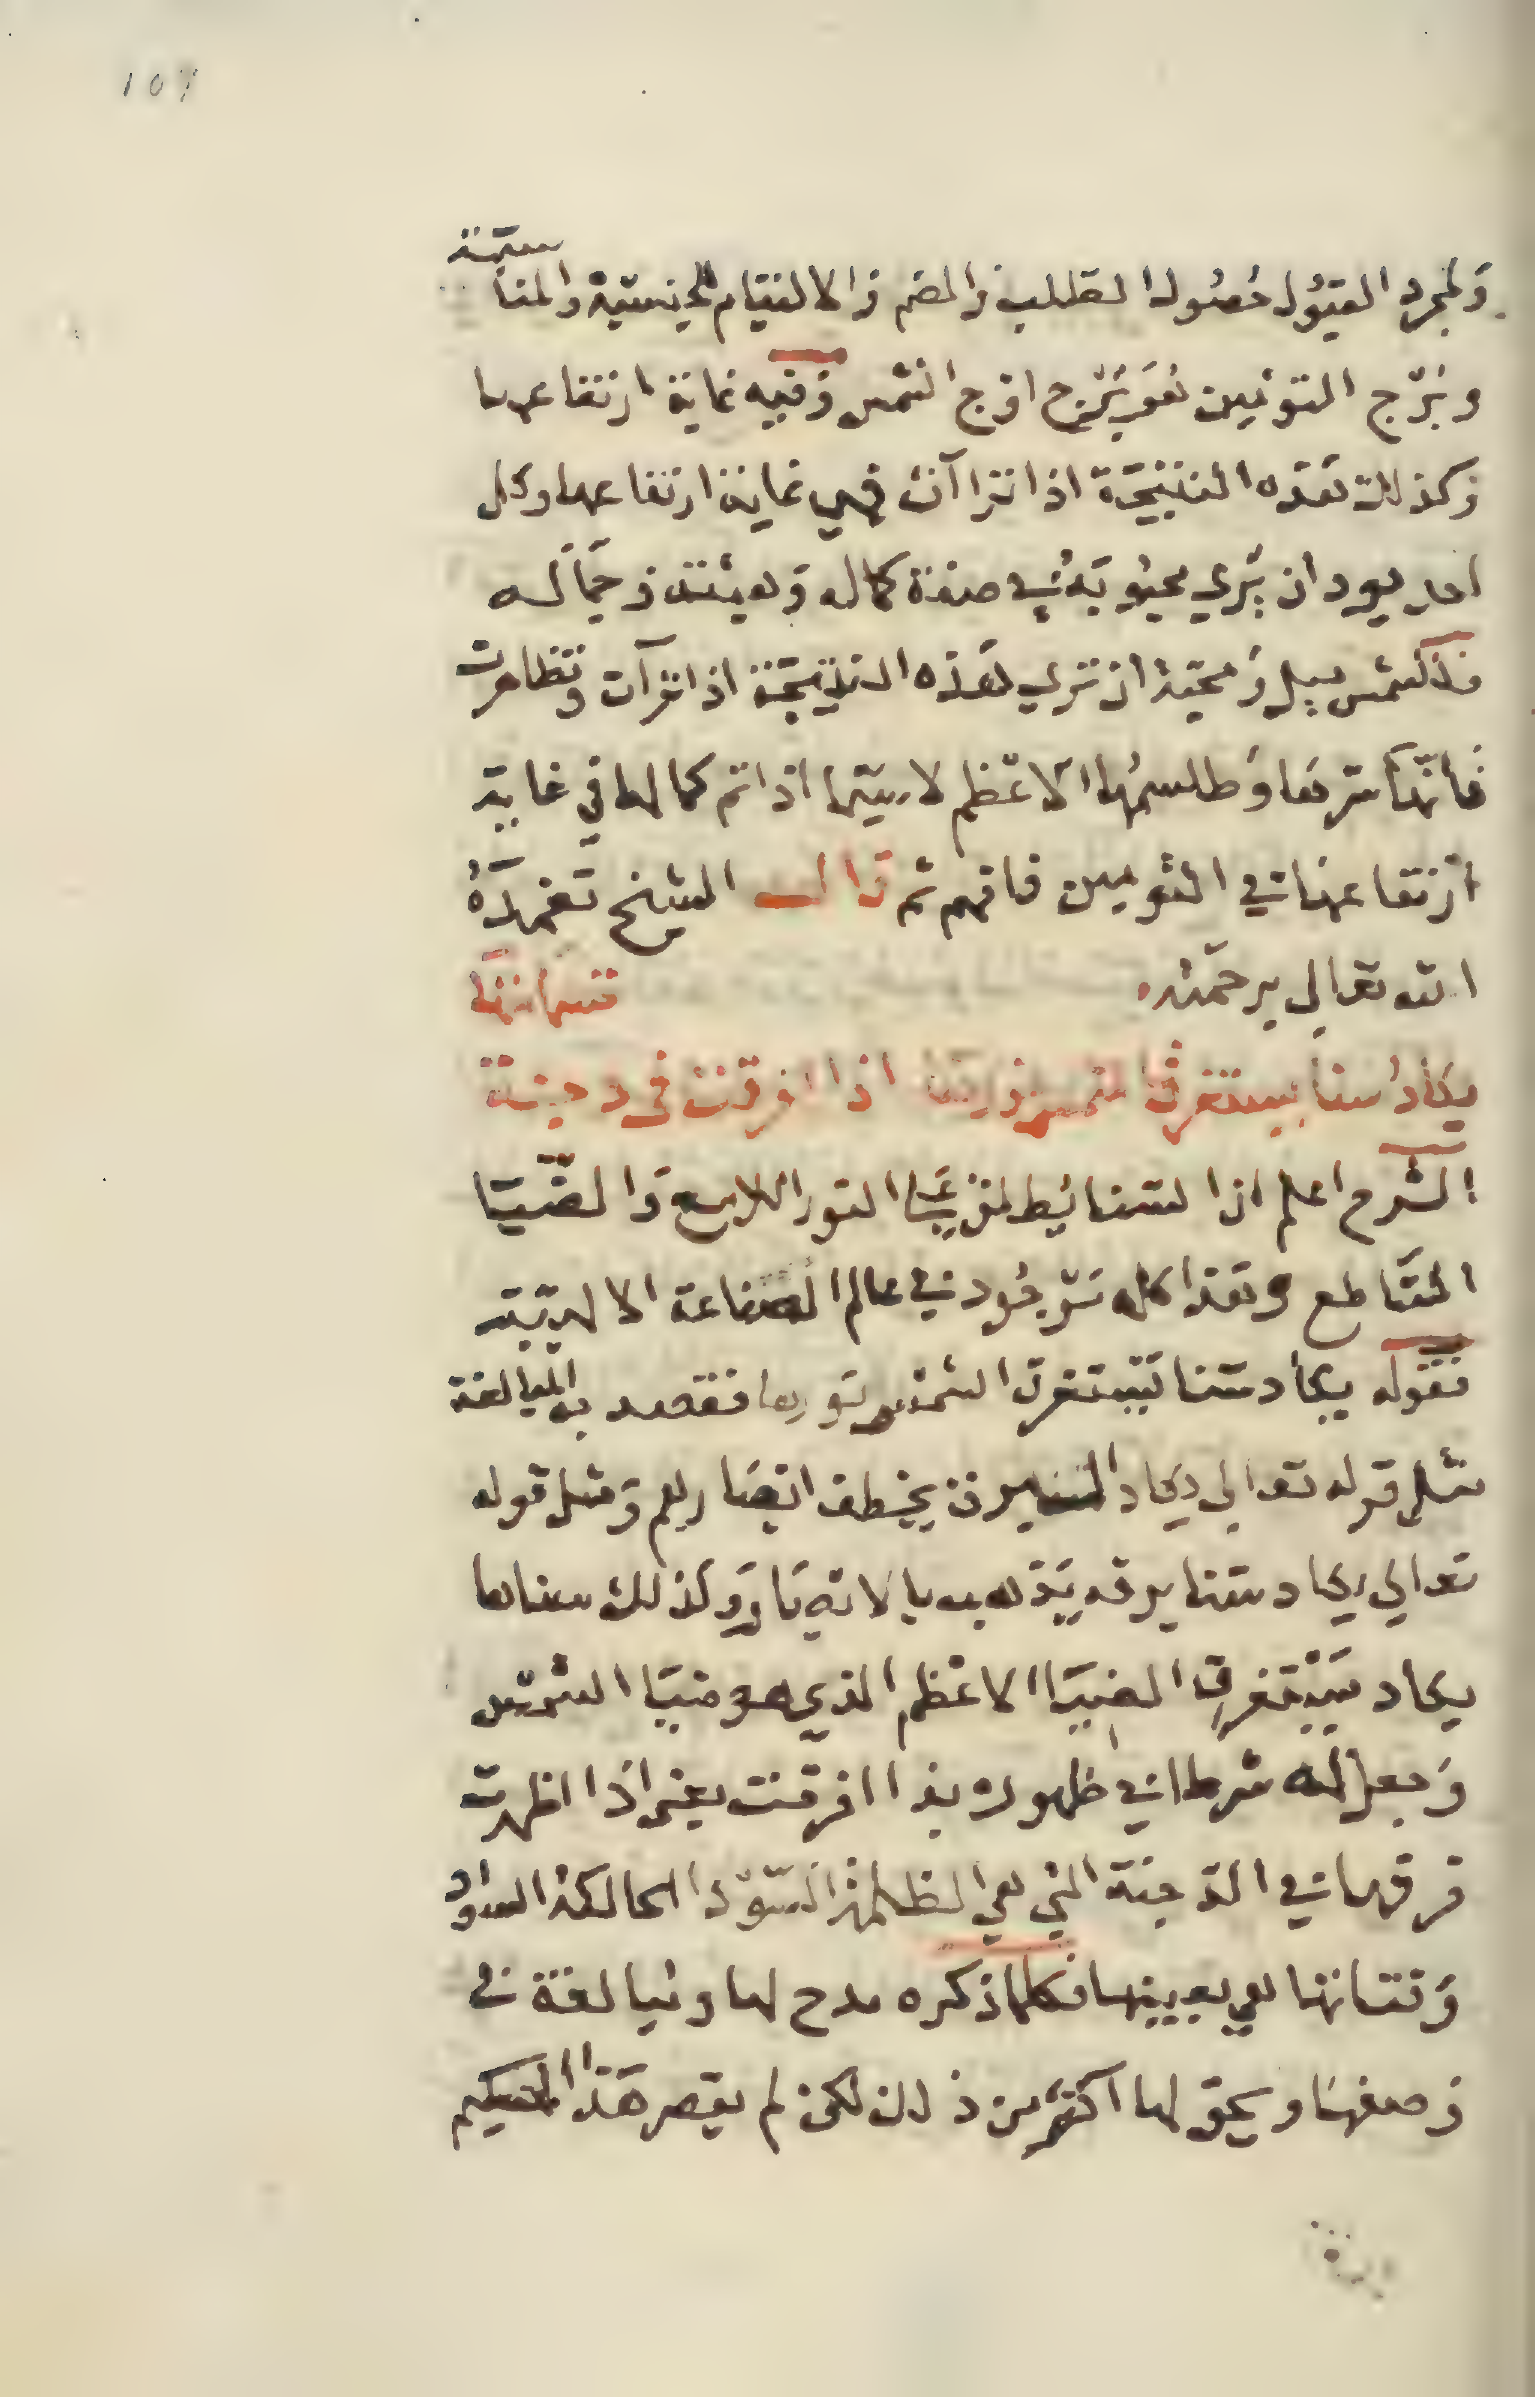 ١٥٦
ولمجرد القبول حصول الطلب والضم والالتيام للجنسية والمناسبة
وبرج التوئمين هو برج اوج الشمس وفيه غاية ارتفاعها
وكذلك هذه النتيجة اذا تراآت فهي غاية ارتفاعها وكل
احد يود ان يري محبوبه في صفة كماله وهيئته وجماله
فالشمس ومحبة ان تري هذه النتيجة اذا ترآت وتظاهرت
فانها سرها وطلسمها الاعظم لا سيما اذا تم كمالها في غاية
ارتفاعها في التومين فافهم ثم قال الشيخ تغمده
الله تعالي برحمته فتاننها
يكاد سنا يستغرق الشمس نورها اذا افرقت في دجنة
الشرح اعلم ان السنا يطلق علي النور اللامع والضيا
الساطع وهذا كله موجود في عالم الصناعة الالهية
فقوله يكاد سنا يستغرق الشمس نورها فقصد به المبالغة
مثل قوله تعالي يكاد البرق يخطف ابصارهم ومثل قوله
تعالي يكاد سنا برقه يذهب بالابصار وكذلك سناها
يكاد يستغرق الضيا الاعظم الذي هو ضيا الشمس
وجعل له شرطا في ظهوره بذا افرقت يعني اذا اظهرت
فرقها في الدجنة التي هي الظلمة السودا الحالكة السواد
وفتاننها هي بعينها فكلما ذكره مدح لها ومبالغة في
وصفها ويحق لها اكثر من ذلك لكن لم يقصر هذا الحكيم